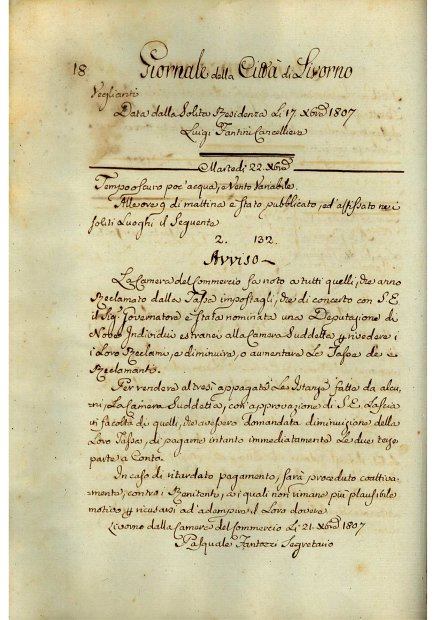 18
Giornale della Città di Livorno
Veglianti
Data dalla Solita Residenza Li 17. Xbre 1807
Luigi Fantini Cancelliere
Martedì 22. Xbre
Tempo oscuro poc'acqua, e Vento Variabile.
Alle ore 9 di mattina è stato pubblicato, ed affissato nei
soliti Luoghi il Seguente
2. 132.
Avviso
La Camera del Commercio fa noto a tutti quelli, che anno
Reclamato dalla Tassa impostagli, che di concerto con S.E.
il Sigr. Governatore è stata nominata una Deputazione di
Nobei Individui estranei alla Camera Suddetta per rivedere i
i Loro Reclami, e diminuire, o aumentare Le Tasse dei
Reclamanti.
Per rendere altresì appagate Le Istanze fatte da alcu-
ni, La Camera Suddetta, con approvazione di S.E. Lascia
in facoltà di quelli, che avessero domandata diminuzione della
Loro Tassa, di pagarne intanto immediatamente Le due terze
parte a Conto.
In caso di ritardato pagamento, sarà proceduto coattiva-
mente, contro i Renitenti, a i quali non rimane più plausibile
motivo per ricusarsi ad adempire il Loro dovere
Livorno dalla Camera del Commercio Li 21. Xbre 1807
Pasquale Fantozzi Segretario